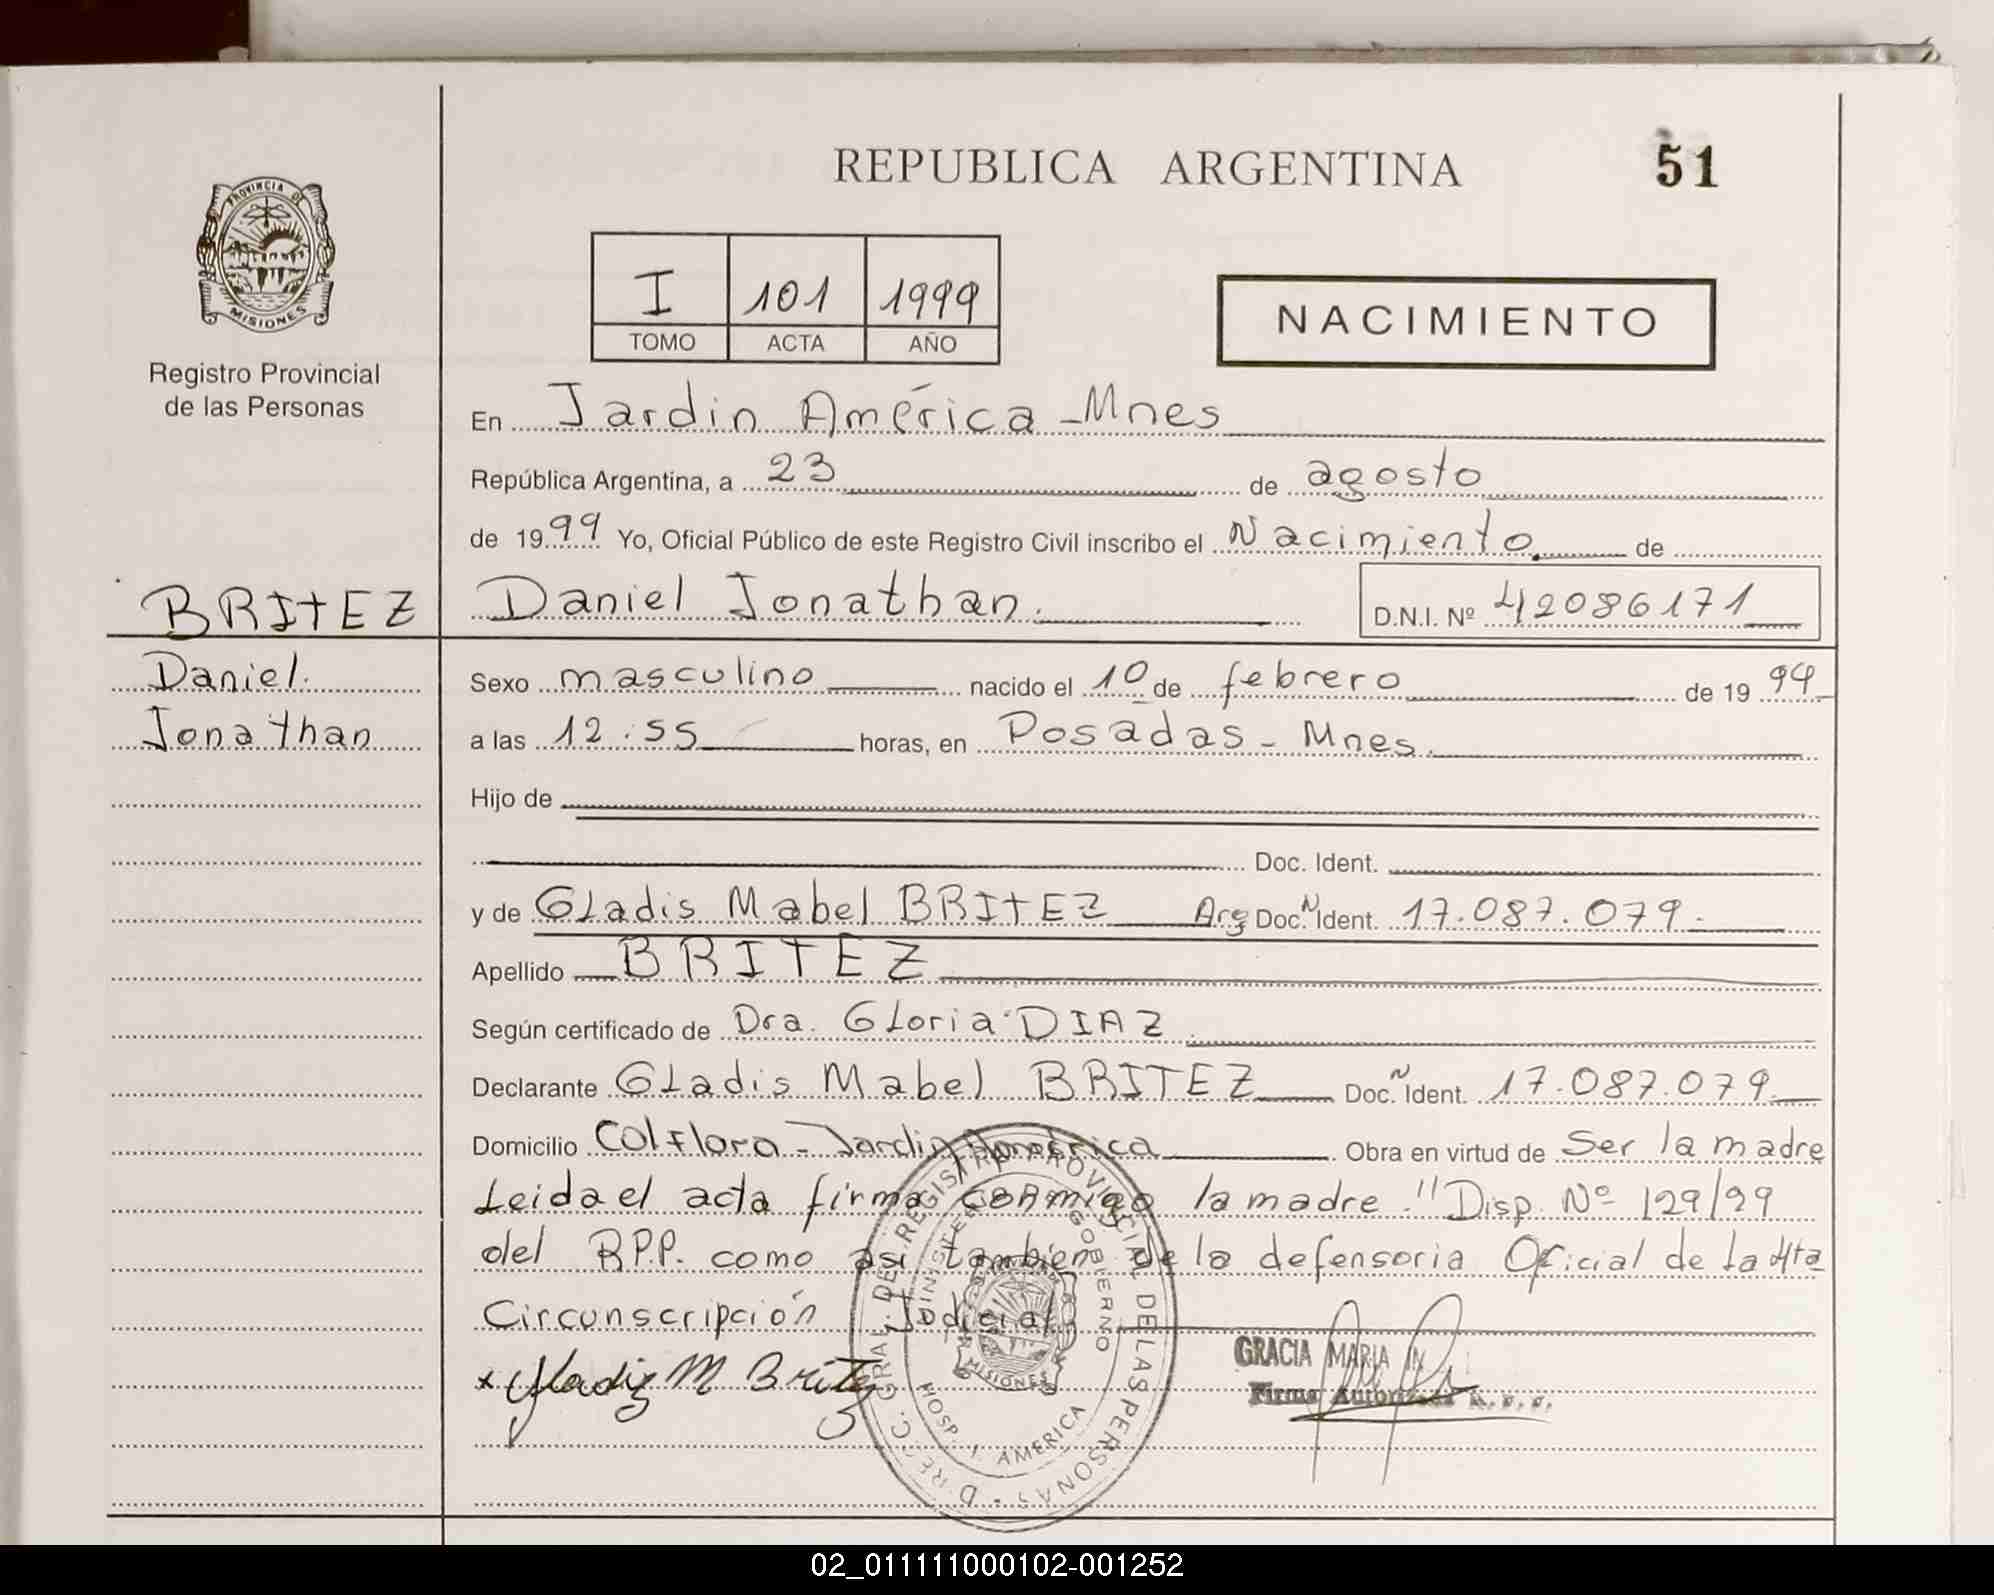 REPUBLICA ARGENTINA
51
PROVINCIA DE
MISIONES
Registro Provincial
de las Personas
I 101 1999
TOMO ACTA AÑO
NACIMIENTO
En Jardin América - Mnes
República Argentina, a 23 de agosto
de 1999 Yo, Oficial Público de este Registro Civil inscribo el Nacimiento de
BRITEZ
Daniel Jonathan. D.N.I. Nº 42086171
Daniel.
Jonathan
Sexo masculino nacido el 10 de febrero de 1994
a las 12:55 horas, en Posadas - Mnes.
Hijo de
Doc. Ident.
y de Gladis Mabel BRITEZ Arg Doc. N Ident. 17.087.079.
Apellido BRITEZ
Según certificado de Dra. Gloria DIAZ
Declarante Gladis Mabel BRITEZ Doc. N Ident. 17.087.079
Domicilio Col Flora - Jardin América Obra en virtud de Ser la madre
Leida el acta firma conmigo la madre " Disp. Nº 129/99
del R.P.P. como asi tambien de la defensoria Oficial de la 4ta
Circunscripción Judicial
x Gladiz M Britez
GRACIA MARIA
Firma Autorizada
DIRECC. GRAL. DEL REGISTRO PROVINCIAL DE LAS PERSONAS
MINISTERIO GOBIERNO
MISIONES
HOSP. J. AMERICA
02_011111000102-001252